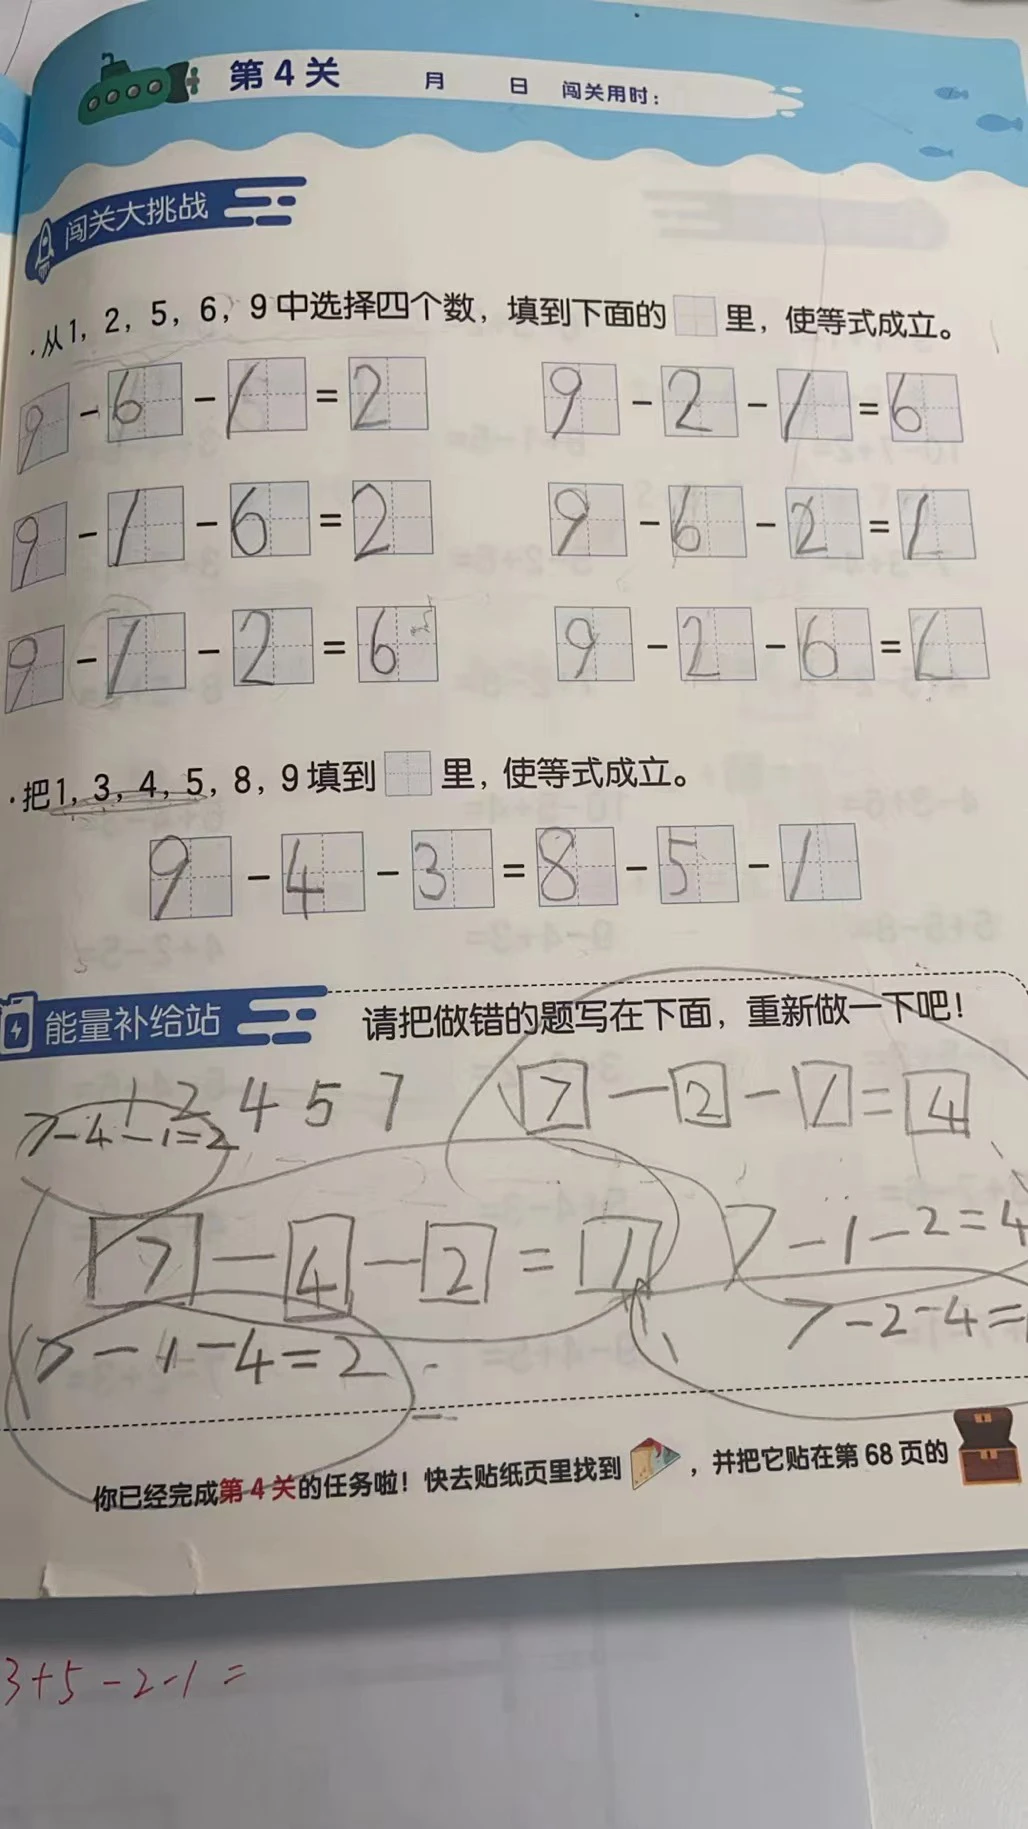 第4关 月 日 闯关用时：
闯关大挑战
·从1，2，5，6，9中选择四个数，填到下面的 里，使等式成立。
9-6-1=2 9-2-1=6
9-1-6=2 9-6-2=1
9-1-2=6 9-2-6=1
·把1，3，4，5，8，9填到 里，使等式成立。
9-4-3=8-5-1
能量补给站 请把做错的题写在下面，重新做一下吧！
1 2 4 5 7 7-2-1=4
7-4-1=2
7-4-2=1 7-1-2=4
7-1-4=2 7-2-4=
你已经完成第4关的任务啦！快去贴纸页里找到 ，并把它贴在第68页的
3+5-2-1=